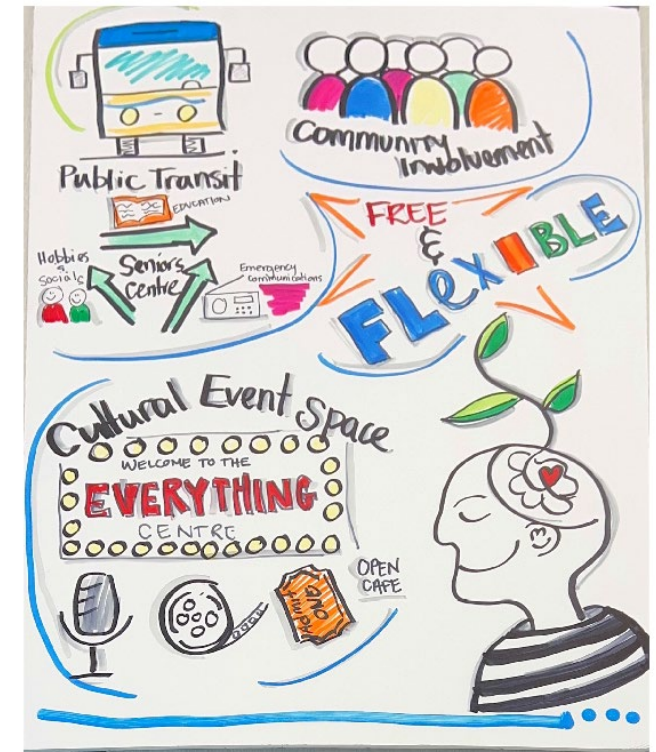 Public Transit
Community
Involvement
EDUCATION
Hobbies
&
Socials
Seniors
Centre
Emergency
Communications
FREE
&
FLEXIBLE
Cultural Event Space
WELCOME TO THE
EVERYTHING
CENTRE
OPEN
CAFE
Admit
ONE